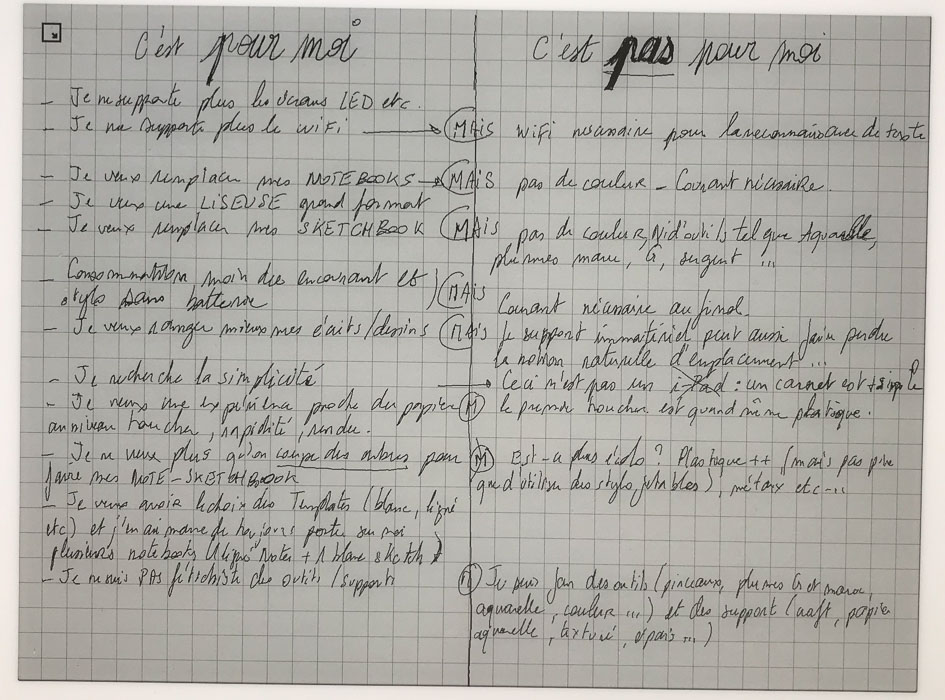 C'est pour moi
- Je ne supporte plus les écrans LED etc.
- Je ne supporte plus le wifi
- Je veux remplacer mes NOTEBOOKS
- Je veux une LISEUSE grand format
- Je veux remplacer mes SKETCHBOOK
- Consommation moin dre en courant et
stylo sans batterie
- Je veux ranger mieux mes écrits/dessins
- Je recherche la simplicité
- Je veux une expérience proche du papier
au niveau toucher, rapidité, rendu.
- Je ne veux plus qu'on coupe des arbres pour
faire mes NOTE-SKETCHBOOK
- Je veux avoir le choix des Templates (blanc, ligné
etc) et j'en ai marre de toujours porter sur moi
plusieurs notebooks (1 ligné Notes + 1 blanc sketch)
- Je ne suis PAS fétichiste des outils/supports
C'est pas pour moi
MAIS wifi nécessaire pour la reconnaissance de texte
MAIS pas de couleur - Courant nécessaire.
MAIS pas de couleur, Ni d'outils tel que Aquarelle,
plumes maru, G, ...
MAIS
Courant nécessaire au final.
MAIS le support immatériel peut aussi faire perdre
la notion naturelle d'emplacement...
Ceci n'est pas un iPad : un carnet est + simple
M le premier toucher est quand même plastique.
M Est-ce plus écolo ? Plastique ++ (mais pas pire
que d'utiliser des stylos jetables), métaux etc...
M Je suis fan des outils (pinceaux, plumes G et maru,
aquarelle, couleur...) et des support (kraft, papier
aquarelle, texturé, épais...)